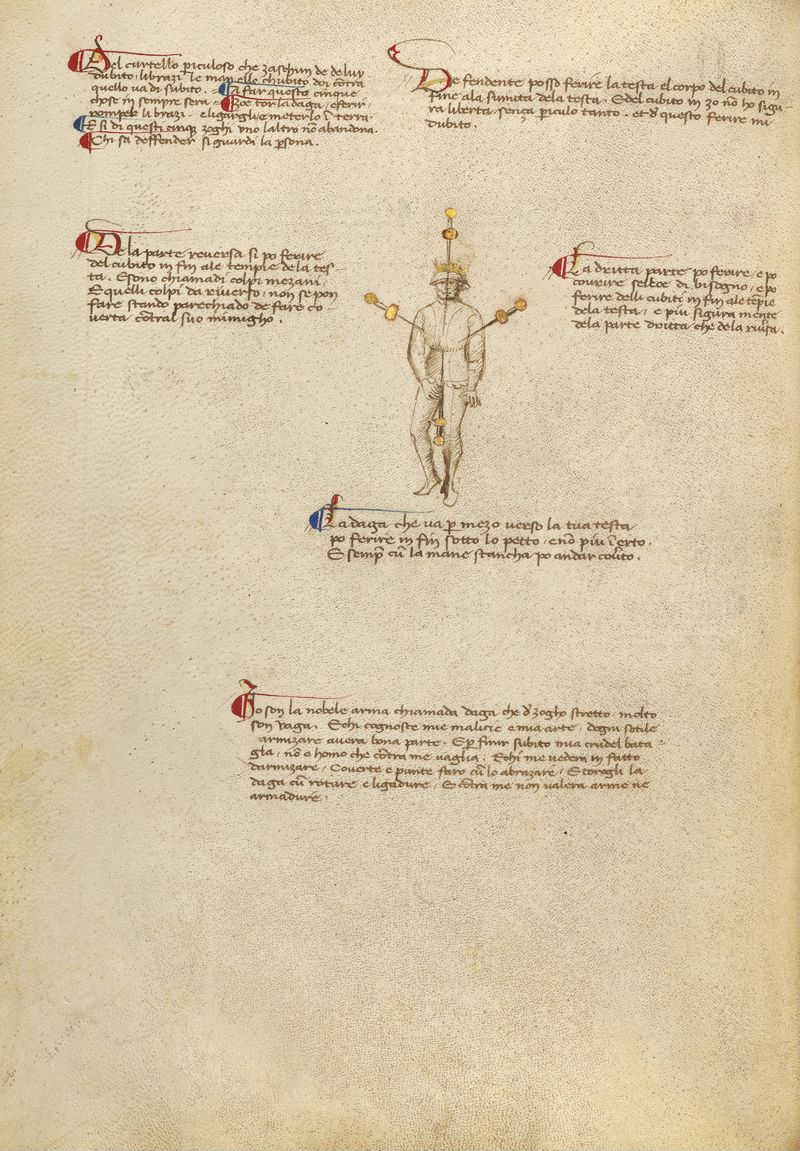 Del cortello piculoso che zaschun de de luy
dubito, li brazi le man elle chubito doi contra
quello va di subito. A far queste cinque
chose in sempre sera. Zoe tor la daga, e ferir
rompere li brazi e ligargli e meterlo i terra.
E si di questi cinq zoghi uno laltro no abandona.
Chi sa deffender si guardi la psona.
De fendente posso ferire la testa el corpo del cubito in
fine ala sumita dela testa. E del cubito in zo no ho sigu-
ra liberta senza piculo tanto. et d questo ferire mi
dubito.
De la parte reversa si po ferire
del cubito in fin ale temple de la tes-
ta. E sono chiamadi colpi mezani,
E quelli colpi da riverso, non se pon
fare stando parechiado de fare co-
verta contra l suo inimigho.
La dritta parte po ferire, e po
courire self de di bisogno, e po
ferire delli cubiti in fin ale tepie
dela testa, e piu sigura mente
dela parte dritta che dela riusa.
La daga che va p mezo verso la tua testa
po ferire in fin sotto lo petto, e no piu i erto.
E semp cu la mane stancha po andar couto.
Io son la nobele arma chiamada daga che d zogho stretto molto
son vaga. E chi cognosce mie malicie e mia arte, dogni sotile
armizare avera bona parte. E p finir subito mia crudel bata
glia, no e homo che contra me vaglia. E chi me vedera in fatto
darmizare, Coverte e punte faro cu lo abrazare, E torogli la
daga cu roture e ligadure, E contra me non valera arme ne
armadure.